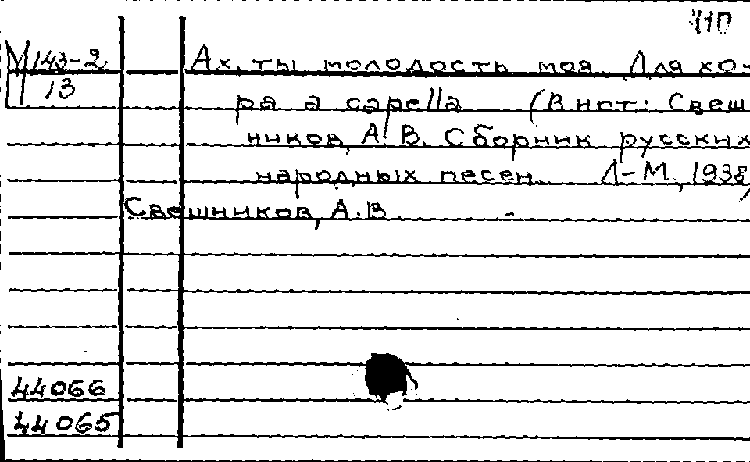 410
М 143-2 Ах, ты молодость моя. Для хо-
13 ра a capella (В нот: Свеш
ников, А. В. Сборник русских
народных песен. Л-М, 1938)
Свешников, А.В.
44066
44065